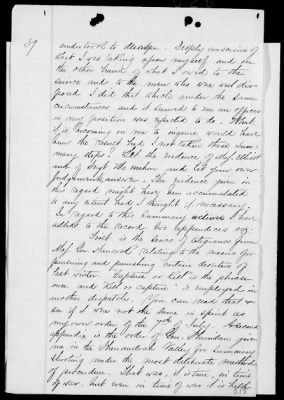 39
undertook to developе. Deeply conscious of
what I was taking upon myself and on
the other hand of what I owed to the
service and to the men who were well dis-
posed I did that which under the same
circumstances and it seemed to me an officer
in my position was expected to do. What
it is becoming in me to inquire would have
been the result had I not taken these sum-
mary steps? Let the evidence of Maj. Elliott
and of Sergt. the and let your own
judgments answer. The evidence given in
this regard might have been accumulated
to any extent had I thought it necessary.
In regard to this summary action I have
added to the record two appendices viz:
First is the series of telegrams from
Maj. Gen. Hancock relating to the means for
pursuing and punishing certain deserters of
last winter. "Capture or kill" is the phrase
once and "Kill or capture" is employed in
another dispatch. You can read that &
see if it were not the same in spirit as
my own order of the 7th of July. A second
appendix, is the order of Gen. Sheridan given
me in the Shenandoah Valley for summary
shooting under the most deliberate method
of procedure. That was, it is true, in time
of war, but even in time of war it is help